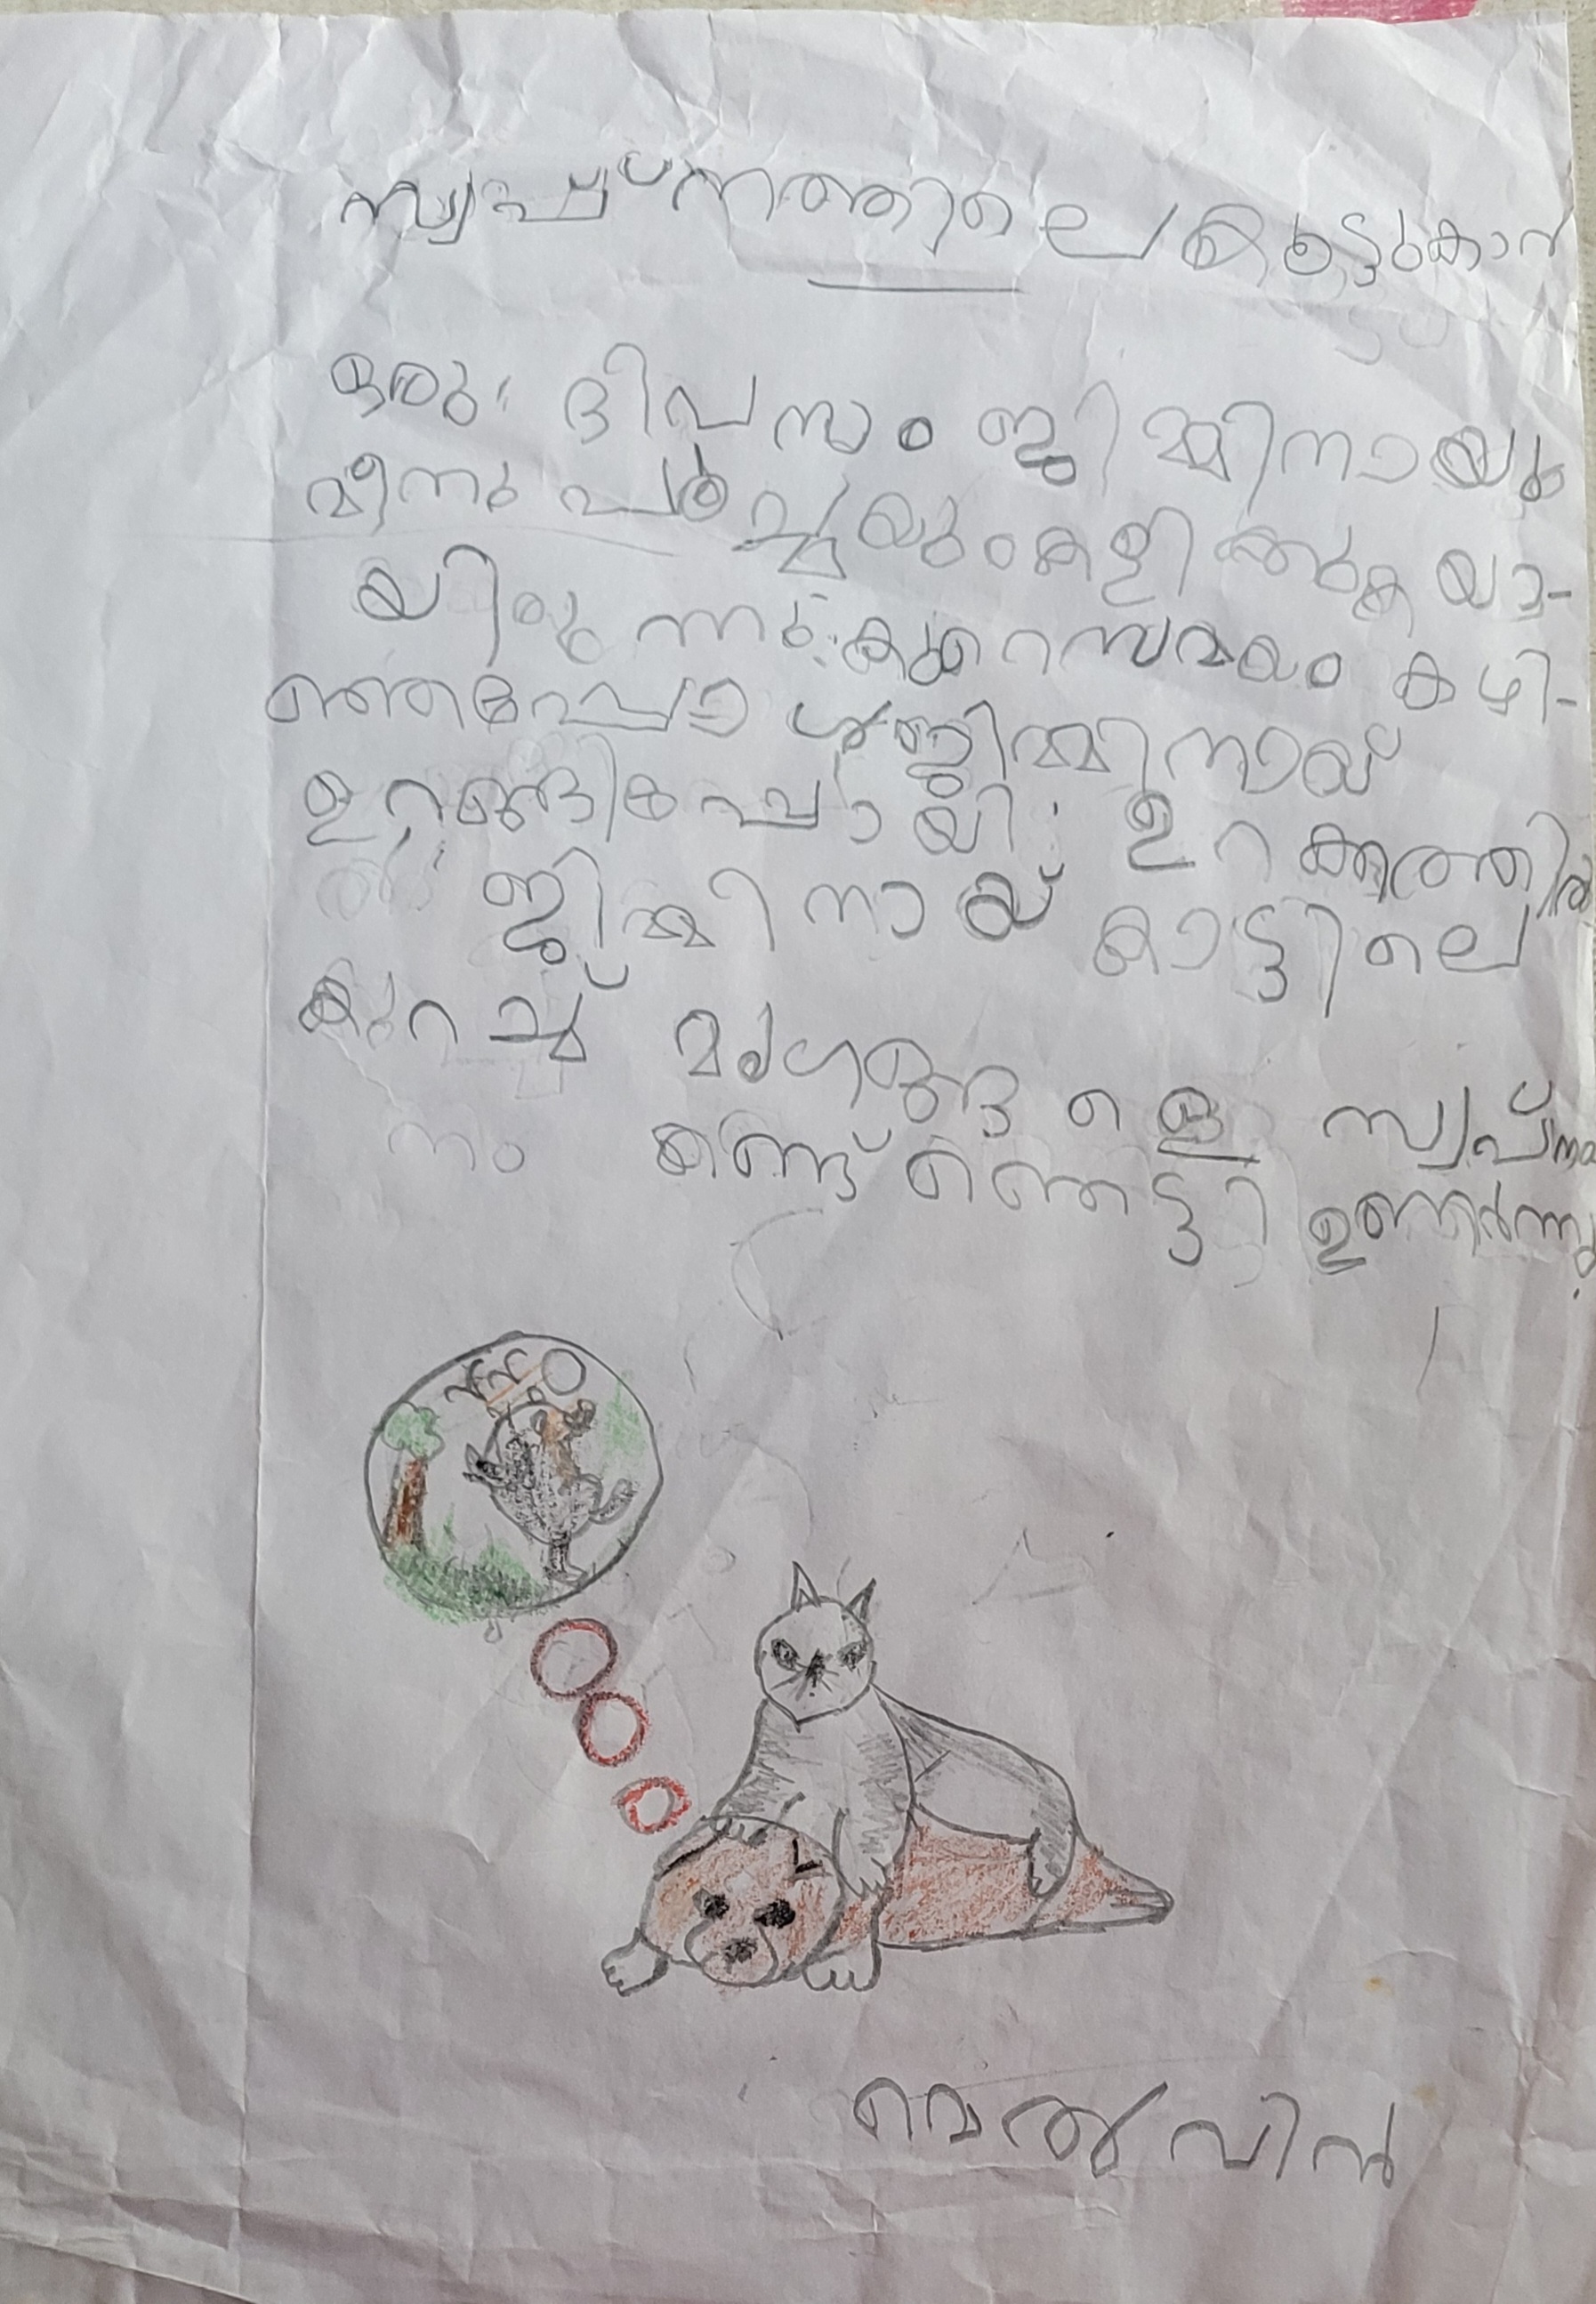 സ്വപ്നത്തിലെ കൂട്ടുകാർ
ഒരു ദിവസം ജിമ്മിനായും
മീനുപൂച്ചയുംകളിക്കുകയാ-
യിരുന്നു. കുറെസമയം കഴി-
ഞ്ഞപ്പോൾ ജിമ്മിനായ്
ഉറങ്ങിപ്പോയി. ഉറക്കത്തിൽ
ജിമ്മിനായ് കാട്ടിലെ
കുറച്ച് മൃഗങ്ങളെ സ്വപ്നം
കണ്ട് ഞെട്ടി ഉണർന്നു.
മെൽവിൻ